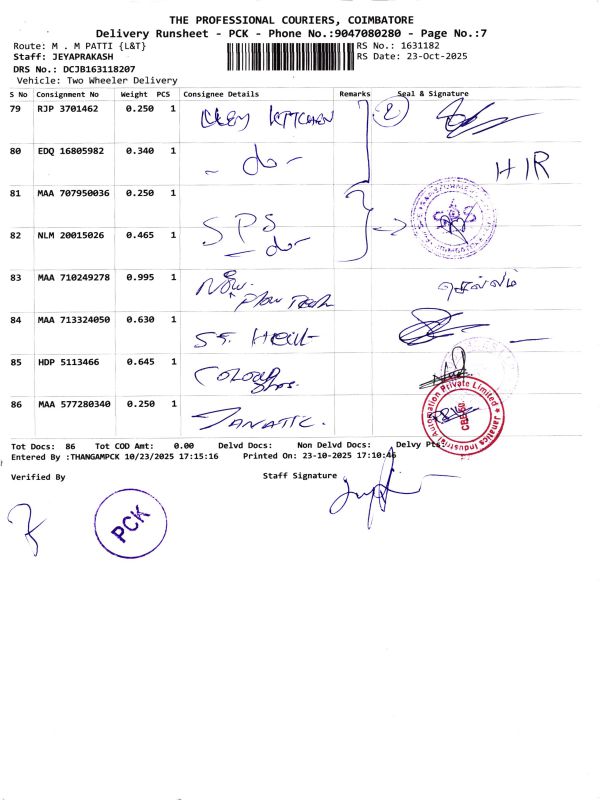 THE PROFESSIONAL COURIERS, COIMBATORE
Delivery Runsheet - PCK - Phone No.:9047080280 - Page No.:7
Route: M . M PATTI {L&T}
RS No.: 1631182
Staff: JEYAPRAKASH
RS Date: 23-Oct-2025
DRS No.: DCJB163118207
Vehicle: Two Wheeler Delivery
S No Consignment No Weight PCS Consignee Details Remarks Seal & Signature
79 RJP 3701462 0.250 1 KITCHEN 2
80 EDQ 16805982 0.340 1 - do -
HIR
81 MAA 707950036 0.250 1 SPS
82 NLM 20015026 0.465 1 - do -
83 MAA 710249278 0.995 1 New
84 MAA 713324050 0.630 1
85 HDP 5113466 0.645 1 COLOUR
86 MAA 577280340 0.250 1 JANATIC.
Janatics Industrial Automation Private Limited
Tot Docs: 86 Tot COD Amt: 0.00 Delvd Docs: Non Delvd Docs: Delvy Pts:
Entered By :THANGAMPCK 10/23/2025 17:15:16 Printed On: 23-10-2025 17:10:46
Verified By Staff Signature
PCK